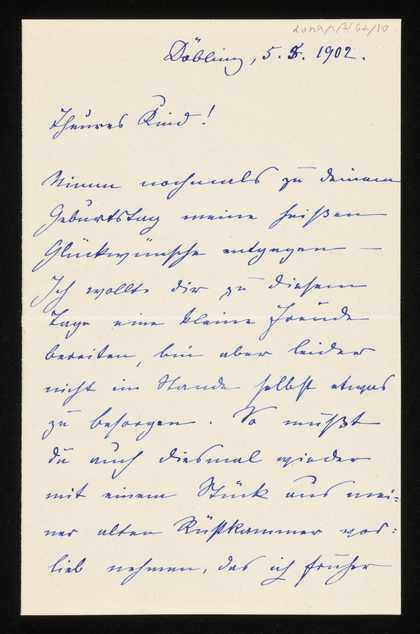 Döbling, 5. 5. 1902.
Theures Kind!
Nimm nochmals zu deinem
Geburtstag meine heißen
Glückwünsche entgegen —
Ich wollte dir zu diesem
Tage eine kleine Freude
bereiten, bin aber leider
nicht im Stande selbst etwas
zu besorgen. So mußt
du auch diesmal wieder
mit einem Stück aus mei=
ner alten Rüstkammer vor=
lieb nehmen, das ich früher